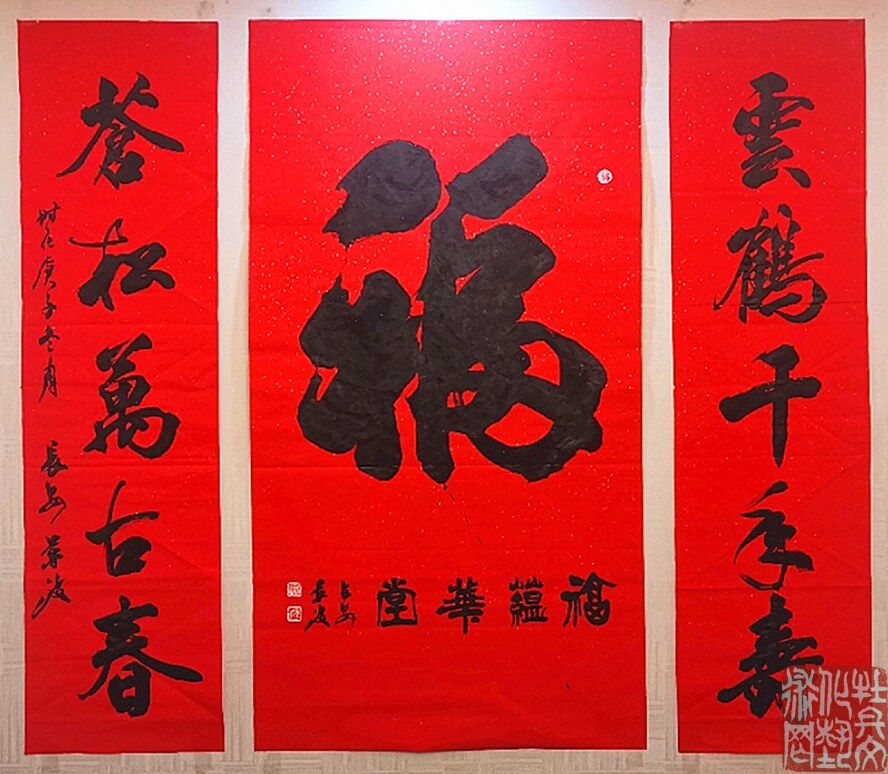 雲鶴千年壽
福
福蘊華堂
長安
蒼松萬古春
時在庚子冬月
長安